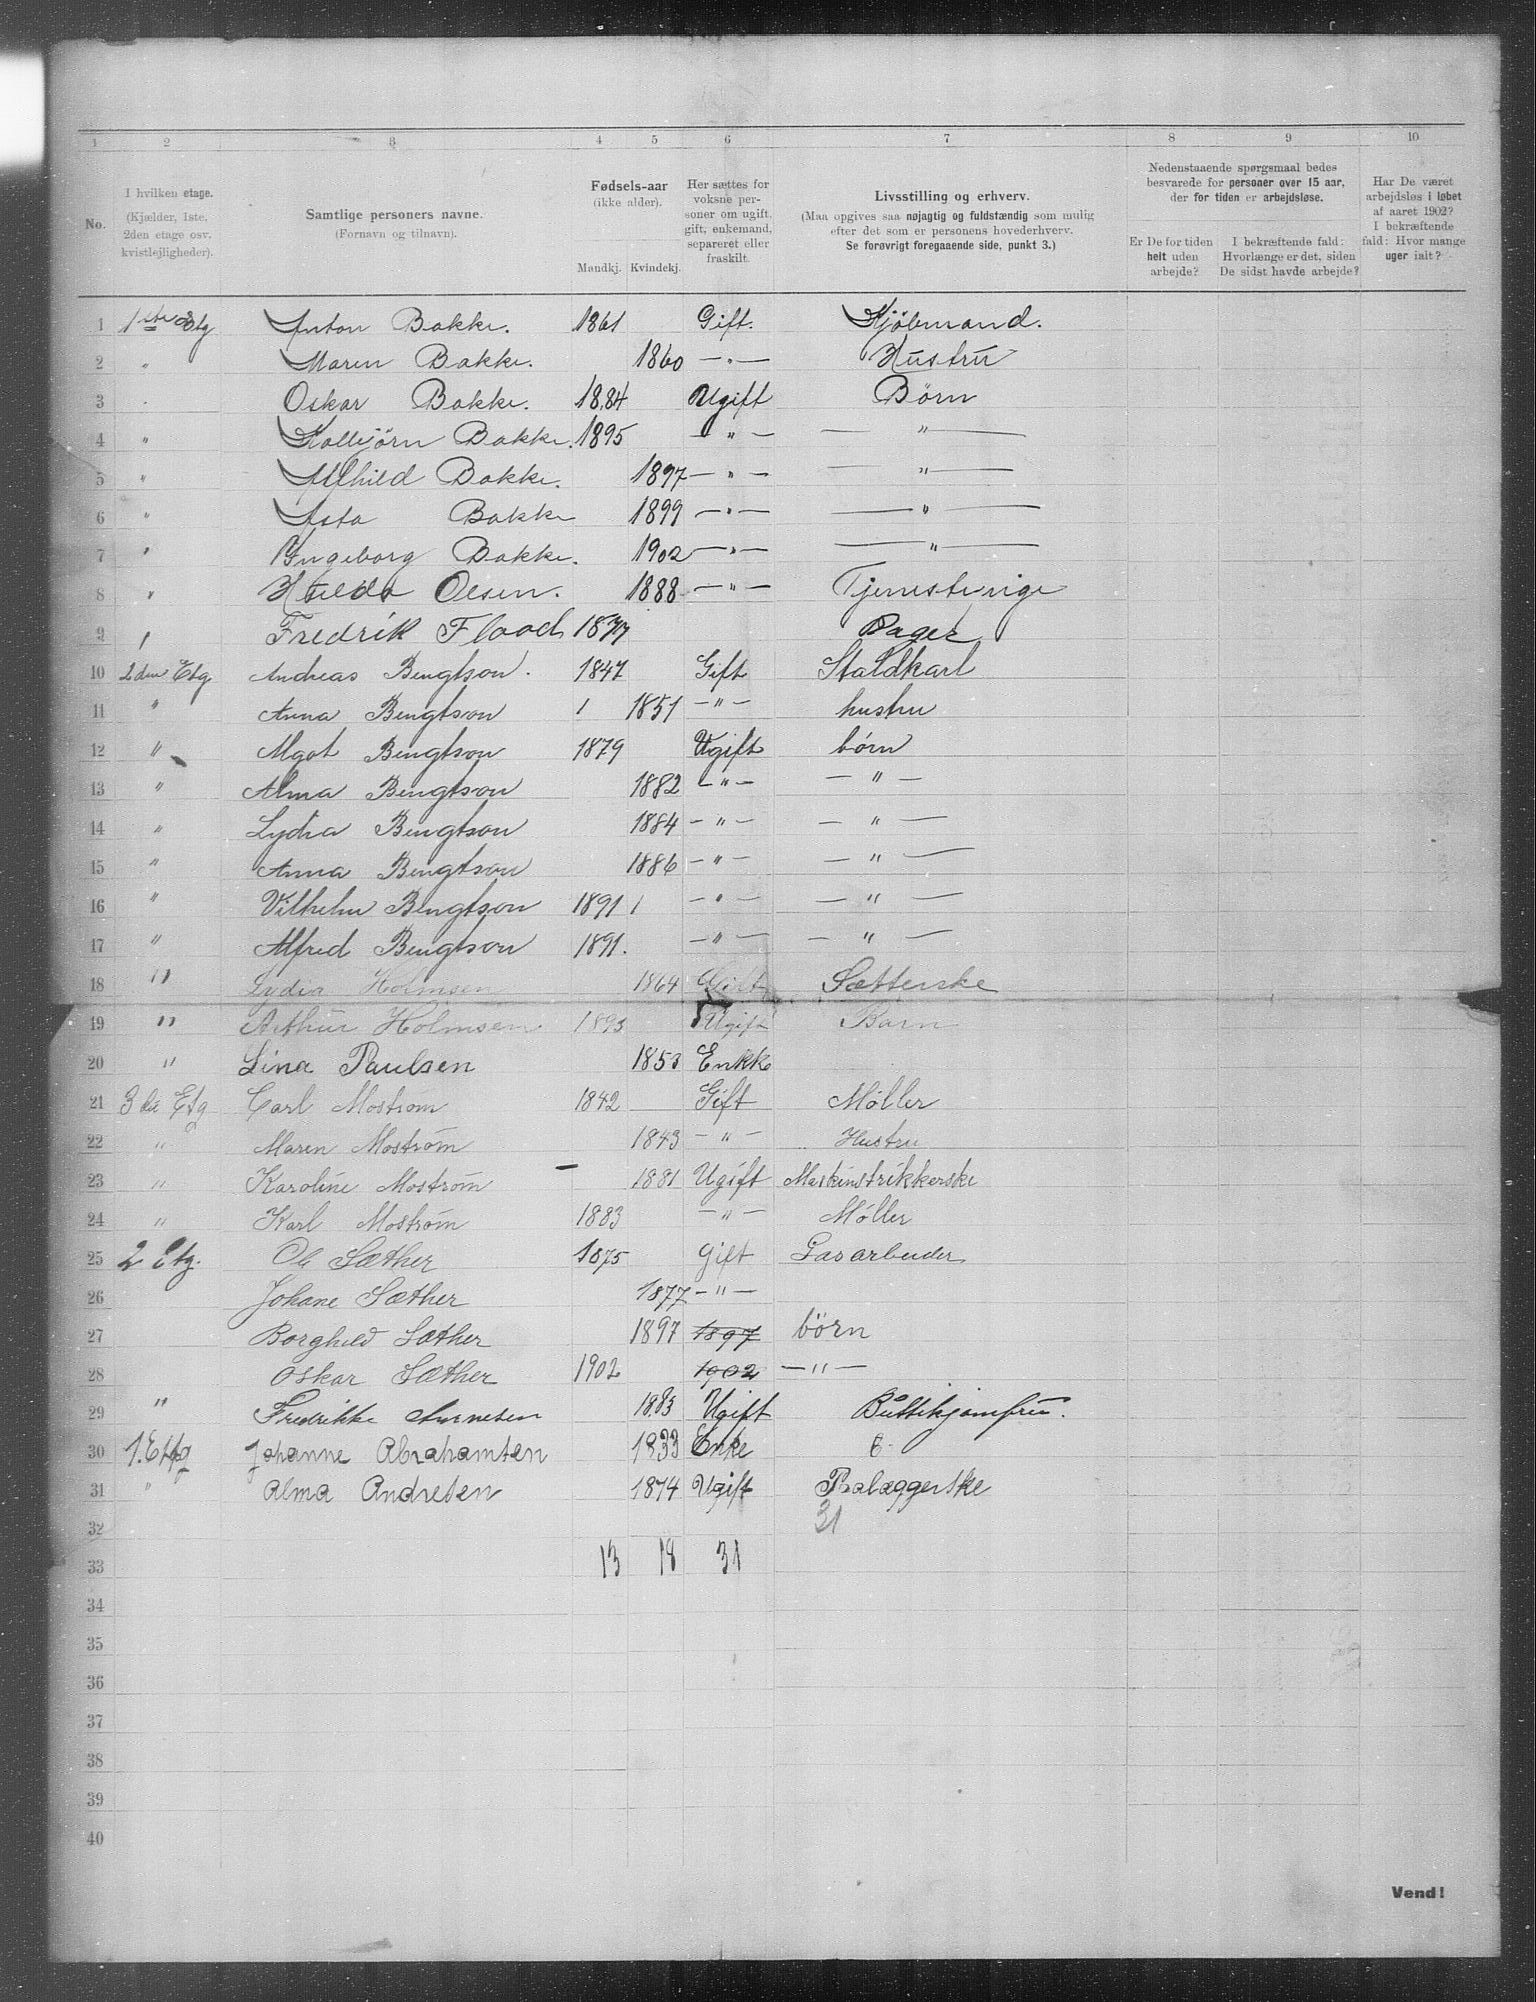 1 2 3 4 5 6 7 8 9 10
No.
I hvilken etage.
(Kjælder, 1ste,
2den etage osv.
kvistlejligheder).
Samtlige personers navne.
(Fornavn og tilnavn).
Fødsels-aar
(ikke alder).
Mandkj. Kvindekj.
Her sættes for
voksne per-
soner om ugift,
gift, enkemand,
separeret eller
fraskilt.
Livsstilling og erhverv.
(Maa opgives saa nøjagtig og fuldstændig som mulig
efter det som er personens hovederhverv.
Se forøvrigt foregaaende side, punkt 3.)
Nedenstaaende spørgsmaal bedes
besvarede for personer over 15 aar,
der for tiden er arbejdsløse.
Er De for tiden
helt uden
arbejde?
I bekræftende fald:
Hvorlænge er det, siden
De sidst havde arbejde?
Har De været
arbejdsløs i løbet
af aaret 1902?
I bekræftende
fald: Hvor mange
uger ialt?
1 1ste Etg Anton Bakke. 1861 Gift. Kjøbmand.
2 " Maren Bakke. 1860 — " — Hustru
3 " Oskar Bakke. 1884 Ugift Børn
4 " Kolbjørn Bakke. 1895 — " — — " —
5 " Alfhild Bakke. 1897 — " — — " —
6 " Asta Bakke 1899 — " — — " —
7 " Yngeborg Bakke. 1902 — " — — " —
8 " Hulda Olsen. 1888 — " — Tjenestepige
9 " Fredrik Flood 1877 Bager
10 2den Etg Andreas Bengtson. 1847 Gift Staldkarl
11 " Anna Bengtson 1851 — " — hustru
12 " Algot Bengtson 1879 Ugift børn
13 " Alma Bengtson 1882 — " — — " —
14 " Lydia Bengtson 1884 — " — — " —
15 " Anna Bengtson 1886 — " — — " —
16 " Vilhelm Bengtson 1891 — " — — " —
17 " Alfred Bengtson 1891. — " — — " —
18 " Lydia Holmsen 1864 Gift Sætterske
19 " Arthur Holmsen 1893 Ugift Barn
20 " Lina Paulsen 1853 Enkke
21 3die Etg Carl Mostrøm 1842 Gift Møller
22 " Maren Mostrøm 1843 — " — Hustru
23 " Karoline Mostrøm 1881 Ugift Maskinstrikkerske
24 " Karl Mostrøm 1883 — " — Møller
25 2 Etg. Ole Sæther 1875 Gift Gasarbeider
26 Johane Sæther 1877 — " —
27 Borghild Sæther 1897 1897 børn
28 Oskar Sæther 1902 1902 — " —
29 " Fredrikke Arnesen 1883 Ugift Buttikjomfru.
30 1. Etg Johanne Abrahamsen 1833 Enke
31 " Alma Andresen 1874 Ugift Ilalæggerske
32 31
33 13 18 31
34
35
36
37
38
39
40
Vend!